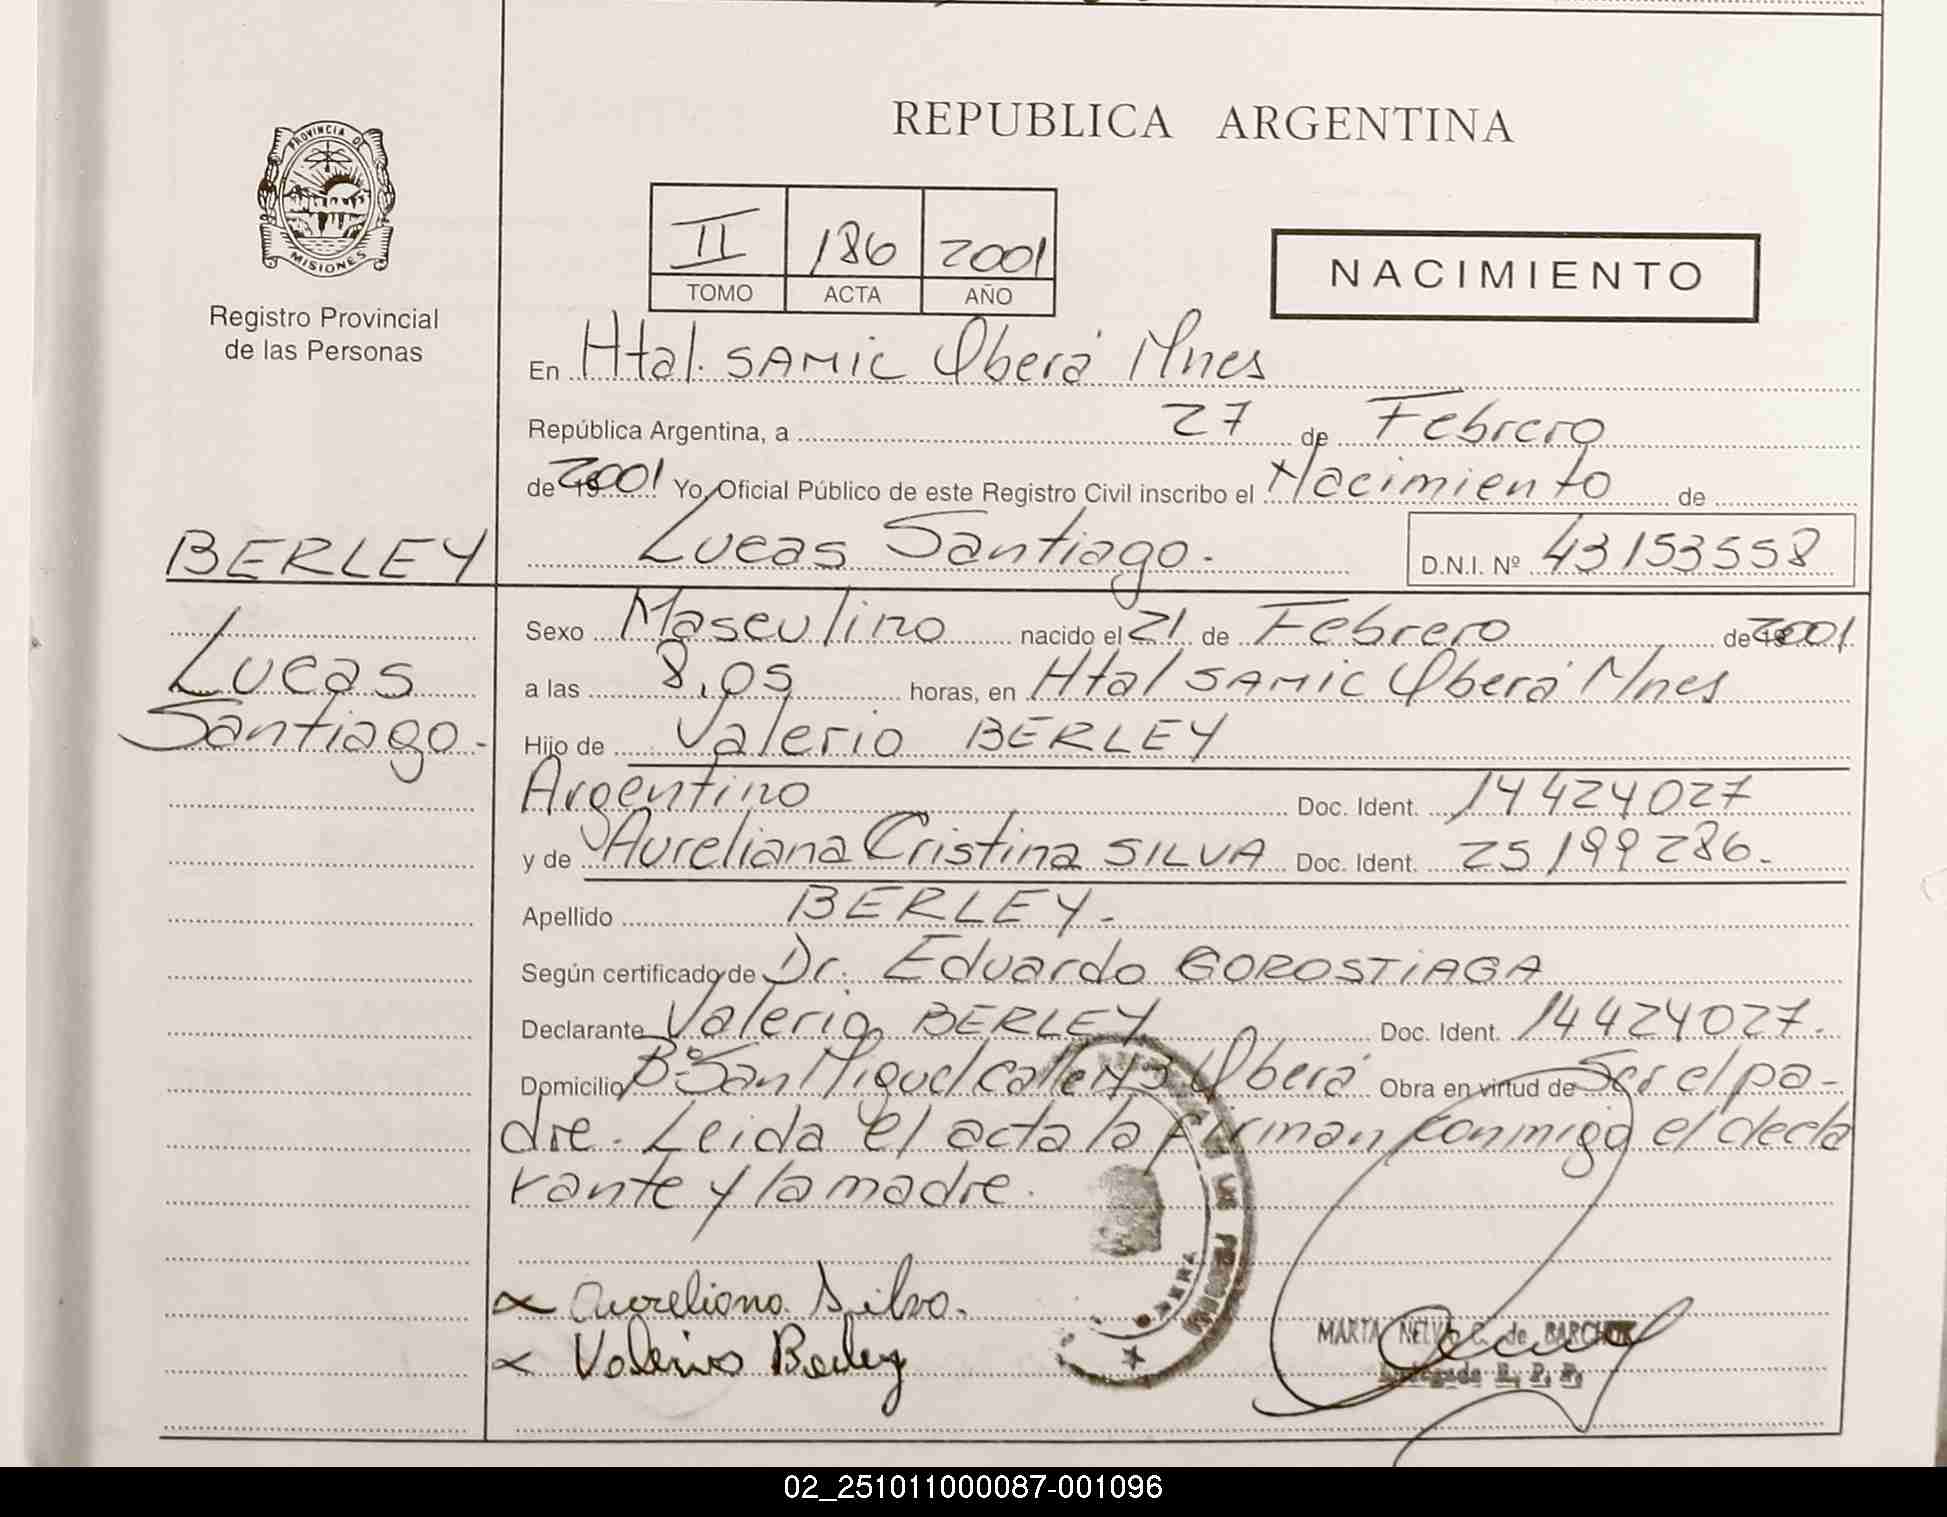 REPUBLICA ARGENTINA
PROVINCIA DE
MISIONES
Registro Provincial
de las Personas
II 186 2001
TOMO ACTA AÑO
NACIMIENTO
En Htal. SAMIC Oberá Mnes
República Argentina, a 27 de Febrero
de 2001 Yo, Oficial Público de este Registro Civil inscribo el Nacimiento de
BERLEY
Lucas Santiago. D.N.I. Nº 43153558
Lucas
Santiago.-
Sexo Masculino nacido el 21 de Febrero de 2001
a las 8,05 horas, en Htal SAMIC Oberá Mnes
Hijo de Valerio BERLEY
Argentino Doc. Ident. 14424027
y de Aureliana Cristina SILVA Doc. Ident. 25199286.-
Apellido BERLEY.-
Según certificado de Dr. Eduardo GOROSTIAGA
Declarante Valerio BERLEY Doc. Ident. 14424027.-
Domicilio Bº San Miguel calle Nº3 Oberá Obra en virtud de Ser el pa-
dre. Leida el acta la firman conmigo el decla
rante y la madre.
x Aureliana Silva.
x Valerio Berley
MARTA NELVA C. de BARCHUK
Delegada R. P. P.
02_251011000087-001096